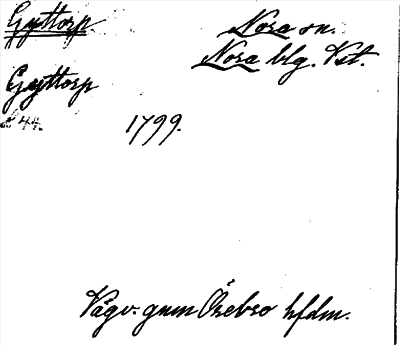 Gyttorp. Nora sn.
Nora blg. Vst.
Gyttorp
s 44. 1799.
Vägv. gnm Örebro hfdm.